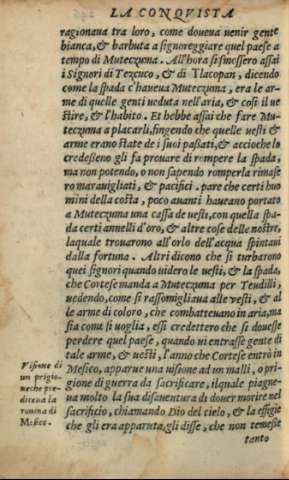 LA CONQVISTA
ragionaua tra loro, come doueua venir gente
bianca, & barbuta a signoreggiare quel paese a
tempo di Muteczuma. All'hora si smessero assai
i Signori di Tezcuco, & di Tlacopan, dicendo
come la spada c'haueua Muteczuma, era le ar-
me di quelle genti ueduta nell'aria, & così il ue
stire, & l'habito. Et hebbe assai che fare Mu-
teczuma a placarli, fingendo che quelle uesti &
arme erano state de i suoi passati, & accioche lo
credessero gli fa prouare di rompere la spada,
ma non potendo, o non sapendo romperla rimase
ro marauigliati, & pacifici. pare che certi huo
mini della costa, poco auanti haueano portato
a Muteczuma una cassa de uesti, con quella spa-
da certi annelli d'oro, & altre cose delle nostre,
laquale trouarono all'orlo dell'acqua spintaui
dalla fortuna. Altri dicono che si turbarono
quei signori quando uidero le uesti, & la spada,
che Cortese manda a Muteczuma per Teudilli,
uedendo, come si rassomigliaua alle uesti, & al
le arme di coloro, che combatteuano in aria, ma
sia come si uoglia, essi credettero che si douesse
perdere quel paese, quando ui entrasse gente di
tale arme, & uesti, l'anno che Cortese entrò in
Messico, apparue una uisione ad un malli, o pri-
gione di guerra da sacrificare, ilquale piagne-
ua molto la sua disauentura di douer morire nel
sacrificio, chiamando Dio del cielo, & la effigie
che gli era apparuta, gli disse, che non temesse
tanto
Visione di
un prigio-
ne che pre-
diceua la
rouina di
Messico.